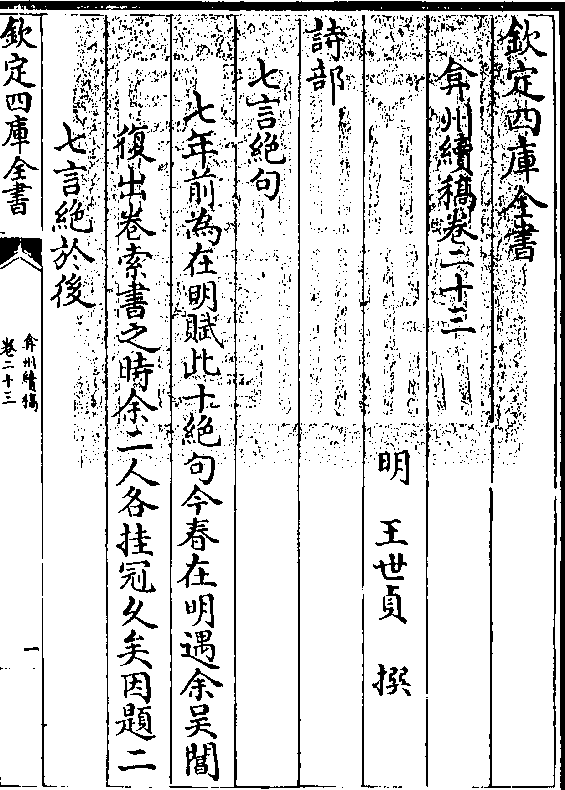 欽定四庫全書
弇州續稿卷二十三
明 王世貞 撰
詩部
七言絕句
七年前為在明賦此十絕句今春在明遇余吳閶
復出卷索書之時余二人各挂冠久矣因題二
七言絕於後
欽定四庫全書
弇州續稿
卷二十三
一